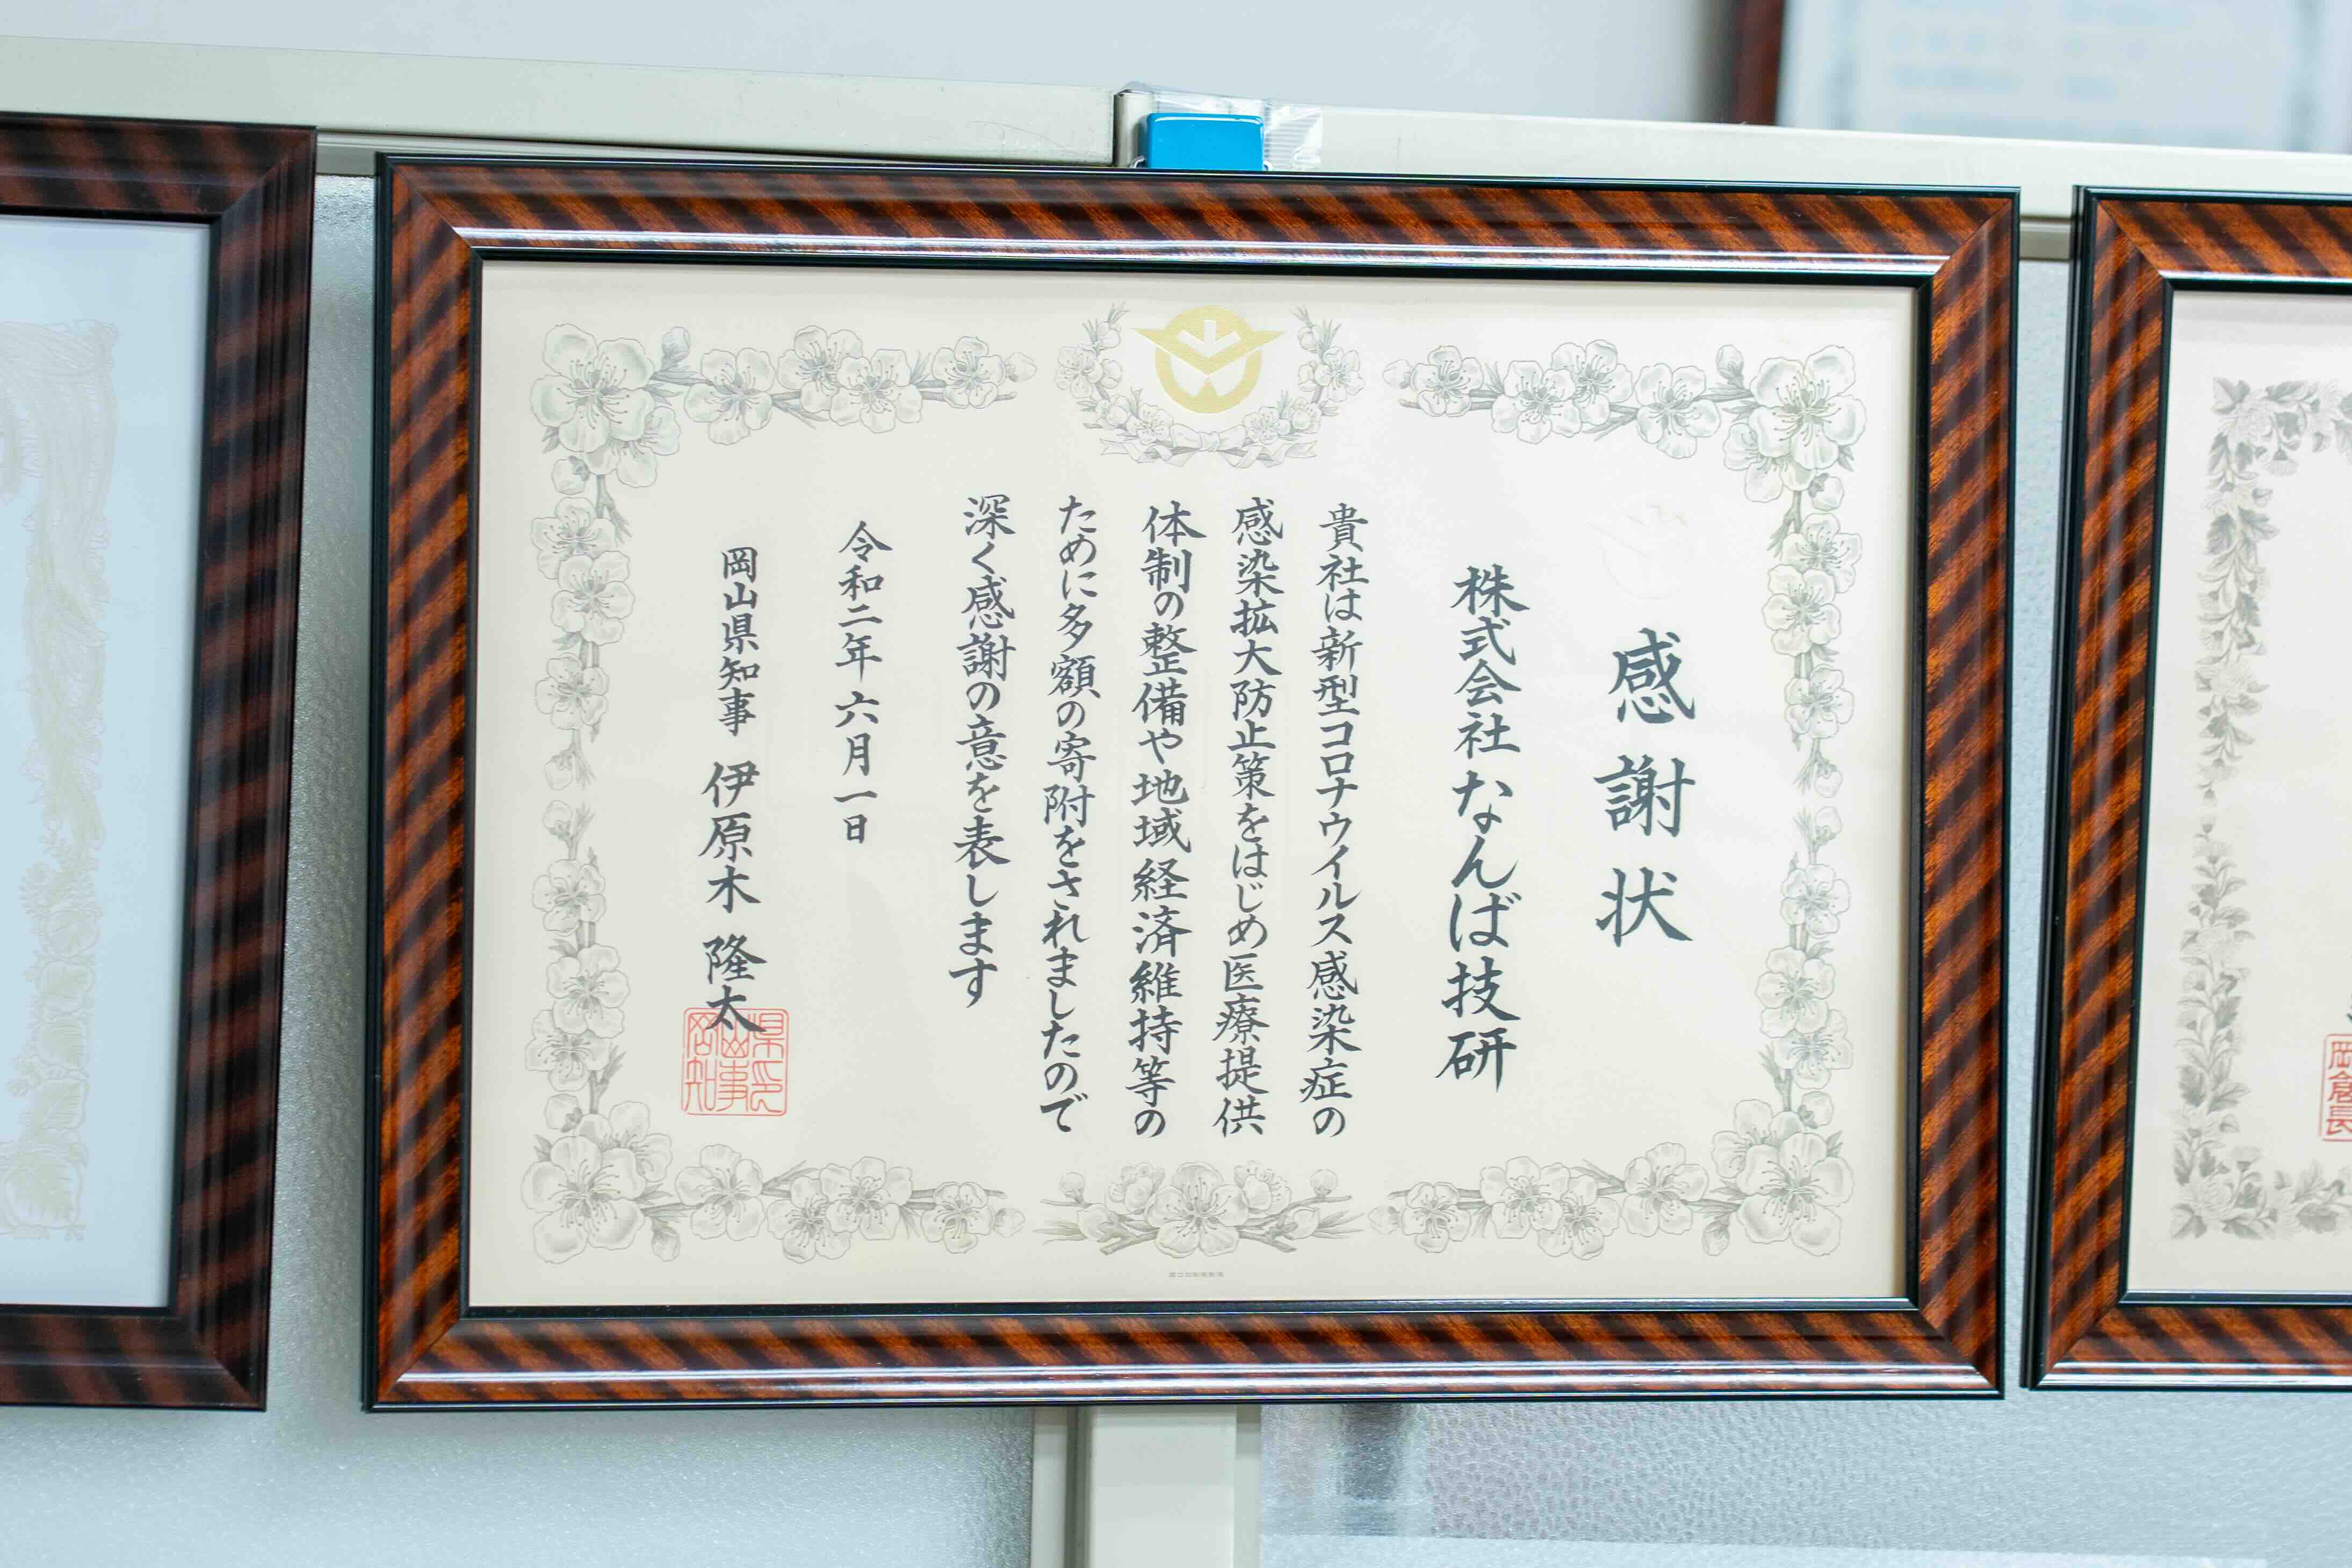 感謝状
株式会社なんば技研
貴社は新型コロナウイルス感染症の
感染拡大防止策をはじめ医療提供
体制の整備や地域経済維持等の
ために多額の寄附をされましたので
深く感謝の意を表します
令和二年六月一日
岡山県知事 伊原木 隆太